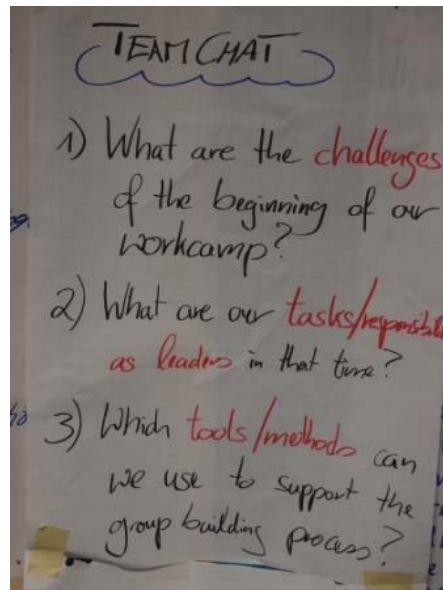 TEAM CHAT
1) What are the challenges
of the beginning of our
workcamp?
2) What are our tasks/responsibili
as leaders in that time?
3) Which tools/methods can
we use to support the
group building process?